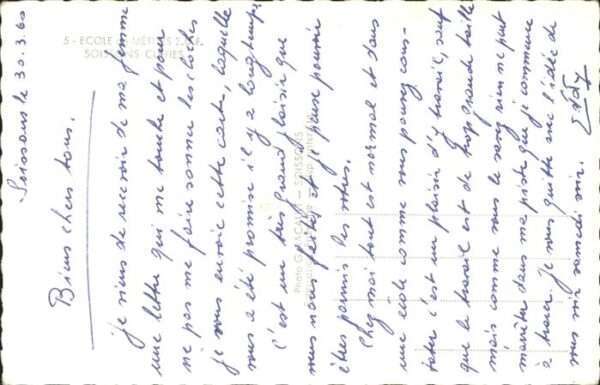 Soissons le 30.3.60
Biens chers tous.
je viens de recevoir de ma femme
une lettre qui me touche et pour
ne pas me faire sonner les cloches
je vous envoie cette carte, laquelle
vous a été promise il y a longtemps
C'est un très grand plaisir que
vous nous faites et j'y pense pouvoir
être parmis les votres.
Chez moi tout est normal et dans
une école comme vous pouvez cons-
tater c'est un plaisir d'y travail, sauf
que le travail est de trop grande taille
mais comme vous le savez rien ne peut
m'arrêter dans ma piste que je commence
à tracer. Je vous quitte avec l'idée de
vous voir samedi soir.
5 - ECOLE DE METIERS E.D.F.
SOISSONS CUFFIES
Photo GRACALIN - SOISSONS